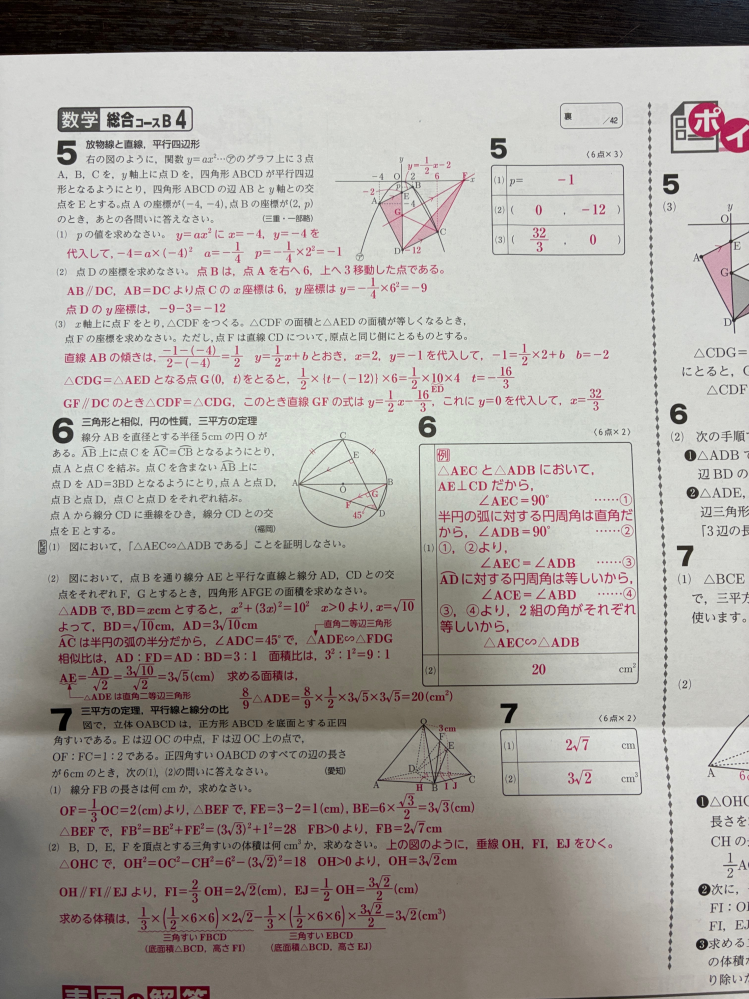 数学 総合コースB 4
裏 /42
5 放物線と直線,平行四辺形
右の図のように,関数y=ax²…㋐のグラフ上に3点
A,B,Cを,y軸上に点Dを,四角形ABCDが平行四辺
形となるようにとり,四角形ABCDの辺ABとy軸との交
点をEとする。点Aの座標が(-4,-4),点Bの座標が(2,p)
のとき,あとの各問いに答えなさい。 (三重・一部略)
(1) pの値を求めなさい。 y=ax²にx=-4,y=-4を
代入して,-4=a×(-4)² a=-1/4 p=-1/4×2²=-1
(2) 点Dの座標を求めなさい。 点Bは,点Aを右へ6,上へ3移動した点である。
AB∥DC,AB=DCより点Cのx座標は6,y座標はy=-1/4×6²=-9
点Dのy座標は,-9-3=-12
(3) x軸上に点Fをとり,△CDFをつくる。△CDFの面積と△AEDの面積が等しくなるとき,
点Fの座標を求めなさい。ただし,点Fは直線CDについて,原点と同じ側にとるものとする。
直線ABの傾きは,-1-(-4)/2-(-4)=1/2 y=1/2x+bとおき,x=2,y=-1を代入して,-1=1/2×2+b b=-2
△CDG=△AEDとなる点G(0, t)をとると,1/2×{t-(-12)}×6=1/2×10×4 t=-16/3
ED
GF∥DCのとき△CDF=△CDG,このとき直線GFの式はy=1/2x-16/3,これにy=0を代入して,x=32/3
y=1/2x-2
y
-4 O 2 6 F x
-2
P B
E
A -4
G
C
D -12
㋐
5 (6点×3)
(1) p= -1
(2) ( 0 , -12 )
(3) ( 32/3 , 0 )
6 三角形と相似,円の性質,三平方の定理
線分ABを直径とする半径5cmの円Oが
ある。AB上に点CをAC=CBとなるようにとり,
点Aと点Cを結ぶ。点Cを含まないAB上に
点DをAD=3BDとなるようにとり,点Aと点D,
点Bと点D,点Cと点Dをそれぞれ結ぶ。
点Aから線分CDに垂線をひき,線分CDとの交
点をEとする。 (福岡)
(1) 図において,「△AEC∽△ADBである」ことを証明しなさい。
(2) 図において,点Bを通り線分AEと平行な直線と線分AD,CDとの交
点をそれぞれF,Gとするとき,四角形AFGEの面積を求めなさい。
△ADBで,BD=xcmとすると,x²+(3x)²=10² x>0より,x=√10
よって,BD=√10cm,AD=3√10cm
直角二等辺三角形
ACは半円の弧の半分だから,∠ADC=45°で,△ADE∽△FDG
相似比は,AD:FD=AD:BD=3:1 面積比は,3²:1²=9:1
AE=AD/√2=3√10/√2=3√5(cm) 求める面積は,
△ADEは直角二等辺三角形
8/9△ADE=8/9×1/2×3√5×3√5=20(cm²)
C
E
A O B
G
F
45°
D
6 (6点×2)
(1) 例
△AECと△ADBにおいて,
AE⊥CDだから,
∠AEC=90° ……①
半円の弧に対する円周角は直角だ
から,∠ADB=90° ……②
①,②より,
∠AEC=∠ADB ……③
ADに対する円周角は等しいから,
∠ACE=∠ABD ……④
③,④より,2組の角がそれぞれ
等しいから,
△AEC∽△ADB
(2) 20 cm²
7 三平方の定理,平行線と線分の比
図で,立体OABCDは,正方形ABCDを底面とする正四
角すいである。Eは辺OCの中点,Fは辺OC上の点で,
OF:FC=1:2である。正四角すいOABCDのすべての辺の長さ
が6cmのとき,次の(1),(2)の問いに答えなさい。 (愛知)
(1) 線分FBの長さは何cmか,求めなさい。
OF=1/3OC=2(cm)より,△BEFで,FE=3-2=1(cm),BE=6×√3/2=3√3(cm)
△BEFで,FB²=BE²+FE²=(3√3)²+1²=28 FB>0より,FB=2√7cm
(2) B,D,E,Fを頂点とする三角すいの体積は何cm³か,求めなさい。 上の図のように,垂線OH,FI,EJをひく。
△OHCで,OH²=OC²-CH²=6²-(3√2)²=18 OH>0より,OH=3√2cm
OH∥FI∥EJより,FI=2/3OH=2√2(cm),EJ=1/2OH=3√2/2(cm)
求める体積は,1/3×(1/2×6×6)×2√2-1/3×(1/2×6×6)×3√2/2=3√2(cm³)
三角すいFBCD 三角すいEBCD
(底面積△BCD,高さFI) (底面積△BCD,高さEJ)
O
3cm
F
E
D
A C
H B I J
7 (6点×2)
(1) 2√7 cm
(2) 3√2 cm³
ポイ
5
(3)
y
O
E
A
G
D
△CDG=
にとると,
△CDF
6
(2) 次の手順で
❶△ADBで
辺BDの
❷△ADE,
辺三角形
「3辺の長
7
(1) △BCE
で,三平方
使います。
(2)
A
❶△OHC
長さを
CHの
❷次に,
FI:O
FI,EJ
❸求める
の体積
り除いた